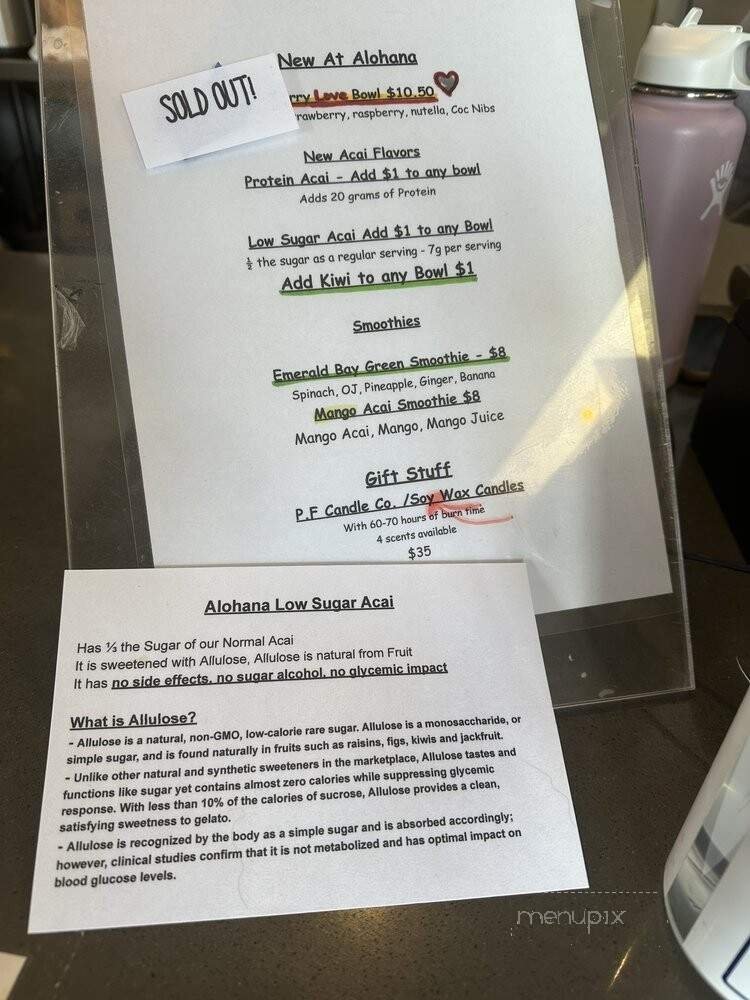 New At Alohana
SOLD OUT!
rry Love Bowl $10.50
rawberry, raspberry, nutella, Coc Nibs
New Acai Flavors
Protein Acai - Add $1 to any bowl
Adds 20 grams of Protein
Low Sugar Acai Add $1 to any Bowl
½ the sugar as a regular serving - 7g per serving
Add Kiwi to any Bowl $1
Smoothies
Emerald Bay Green Smoothie - $8
Spinach, OJ, Pineapple, Ginger, Banana
Mango Acai Smoothie $8
Mango Acai, Mango, Mango Juice
Gift Stuff
P.F Candle Co. /Soy Wax Candles
With 60-70 hours of burn time
4 scents available
$35
Alohana Low Sugar Acai
Has ⅓ the Sugar of our Normal Acai
It is sweetened with Allulose, Allulose is natural from Fruit
It has no side effects, no sugar alcohol, no glycemic impact
What is Allulose?
- Allulose is a natural, non-GMO, low-calorie rare sugar. Allulose is a monosaccharide, or
simple sugar, and is found naturally in fruits such as raisins, figs, kiwis and jackfruit.
- Unlike other natural and synthetic sweeteners in the marketplace, Allulose tastes and
functions like sugar yet contains almost zero calories while suppressing glycemic
response. With less than 10% of the calories of sucrose, Allulose provides a clean,
satisfying sweetness to gelato.
- Allulose is recognized by the body as a simple sugar and is absorbed accordingly;
however, clinical studies confirm that it is not metabolized and has optimal impact on
blood glucose levels.
menupix